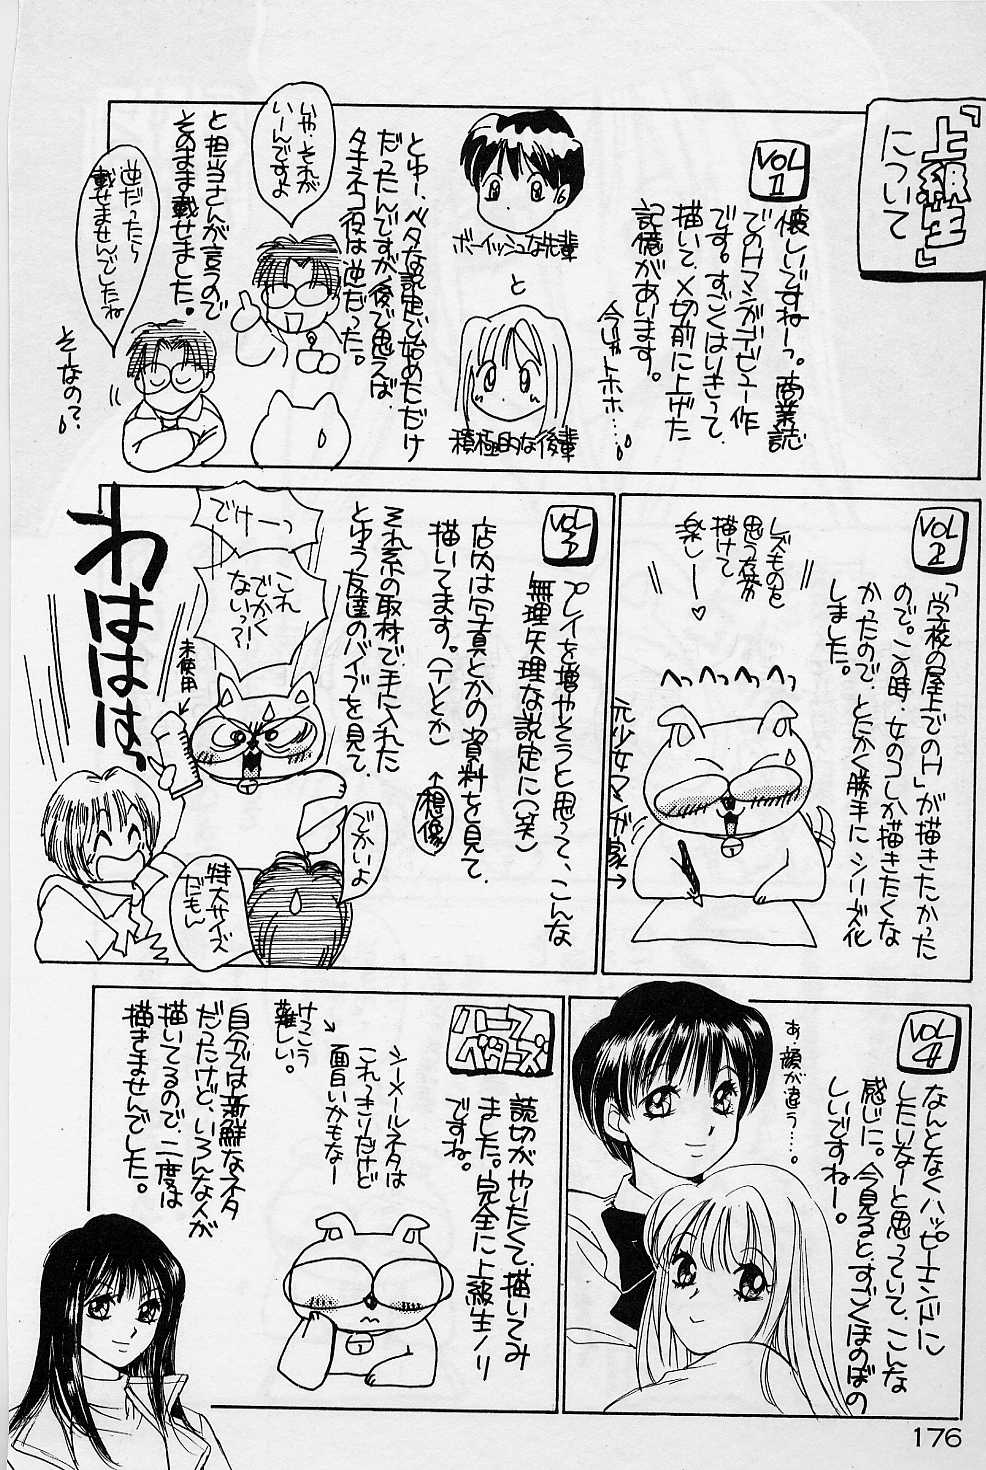 「上級生」
について
VOL 1
懐しいですねーっ。商業誌
でのHマンガデビュー作
です。すごくはりきって、
描いて、〆切前に上げた
記憶があります。
今じゃトホホ……
ボーイッシュな先輩
と
積極的な後輩
とゆー、ベタな設定で始めただけ
だったんですが、後で思えば、
タチネコ役は逆だった。
いや、それが
いーんですよ
と担当さんが言うので
そのまま載せました。
逆だったら
載せませんでしたね
そーなの?
VOL 2
「学校の屋上でのH」が描きたかった
ので。この時、女のコしか描きたくな
かったので、とにかく勝手にシリーズ化
しました。
レズものを
思う存分
描けて
楽しーー♡
へっへっへっへっ
元少女マンガ家→
VOL 3
プレイを増やそうと思って、こんな
無理矢理な設定に(笑)
店内は写真とかの資料を見て、
描いてます。(Tとか)
↑想像
それ系の取材で手に入れた
とゆう友達のバイブを見て、
でけーーっ
これ
でかく
ないっ?!
未使用
わははは
でかいよ
特大サイズ
だもん
VOL 4
なんとなくハッピーエンドに
したいなーと思っていて、こんな
感じに。今見ると、すごくほのぼの
しいですねー。
あ、顔が違う…。
ハーフ
ベターズ
読切がやいたくて、描いてみ
ました。完全に上級生ノリ
ですね。
シーメールネタは
これっきりだけど
面白いかもなー
↓
けっこう
難しい。
自分では新鮮なネタ
だったけど、いろんな人が
描いてるので、二度は
描きませんでした。
176